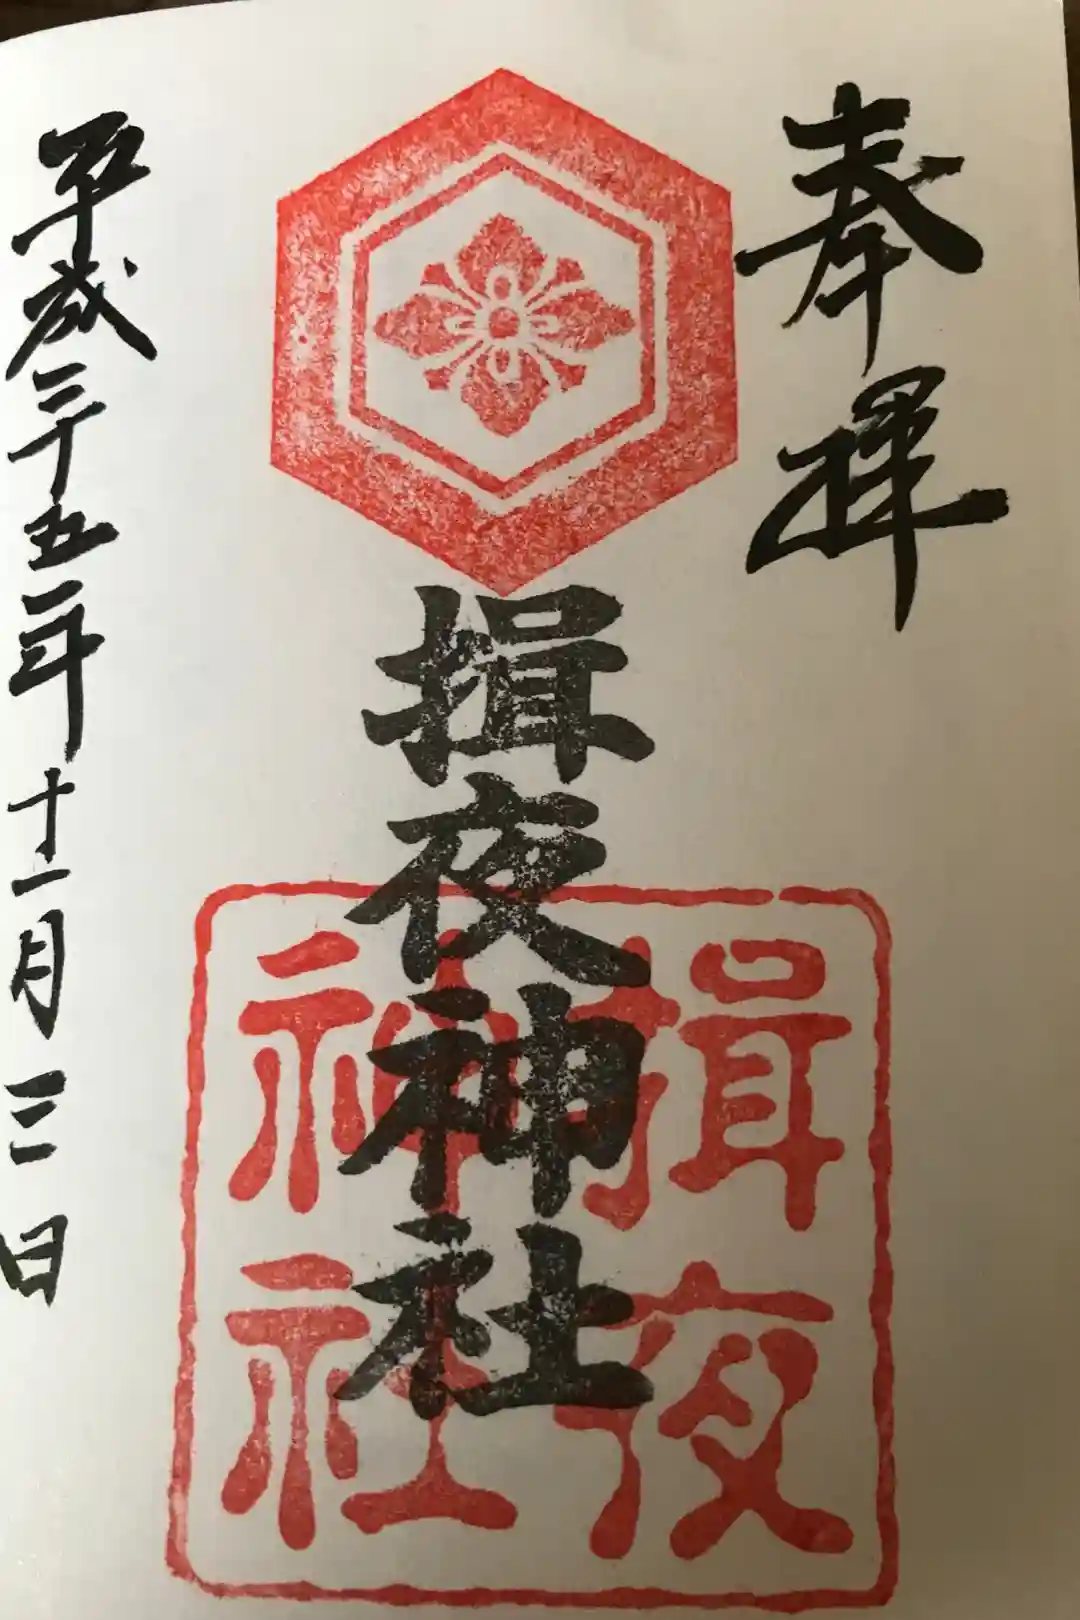 奉拝
揖夜神社
揖夜
神社
平成二十五年十一月三日